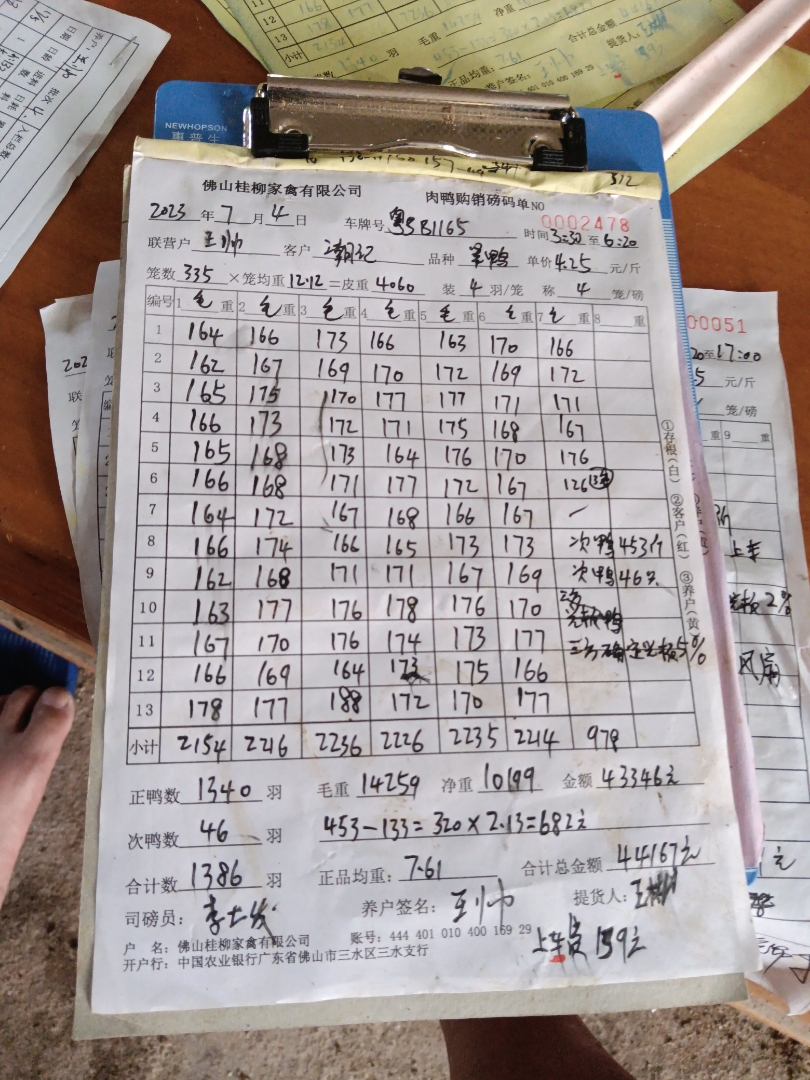 NEWHOPSON
惠普生
312
佛山桂柳家禽有限公司 肉鸭购销磅码单NO
0002478
2023年7月4日 车牌号 粤SB1165 时间3:30至6:20
联营户 王帅 客户 潮记 品种 单价4.25元/斤
笼数335×笼均重12.12=皮重4060 装4羽/笼 称4笼/磅
编号 1毛重 2毛重 3毛重 4毛重 5毛重 6毛重 7毛重 8重
1 164 166 173 166 163 170 166
2 162 167 169 170 172 169 172
3 165 175 170 177 177 171 171
4 166 173 172 171 175 168 167
5 165 168 173 164 176 170 176
6 166 168 171 177 172 167 126
7 164 172 167 168 166 167 /
8 166 174 166 165 173 173 次鸭453斤
9 162 168 171 171 167 169 次鸭46只
10 163 177 176 178 176 170
11 167 170 176 174 173 177
12 166 169 164 173 175 166
13 178 177 188 172 170 177
小计 2154 2216 2236 2226 2235 2214 978
①存根(白) ②客户(红) ③养户(黄)
正鸭数1340羽 毛重14259 净重10199 金额43346元
次鸭数46羽 453-133=320×2.13=682元
合计数1386羽 正品均重:7.61 合计总金额44167元
司磅员: 养户签名:王帅 提货人:
户 名:佛山桂柳家禽有限公司 账号:444 401 010 400 169 29
开户行:中国农业银行广东省佛山市三水区三水支行
上车费159元
00051
20至17:00
元/斤
笼/磅
重 9 重
上车
2%
风扇
元
12
13
小计
羽
毛重
净重
合计总金额
正品均重:7.61
提货人:
养户签名: